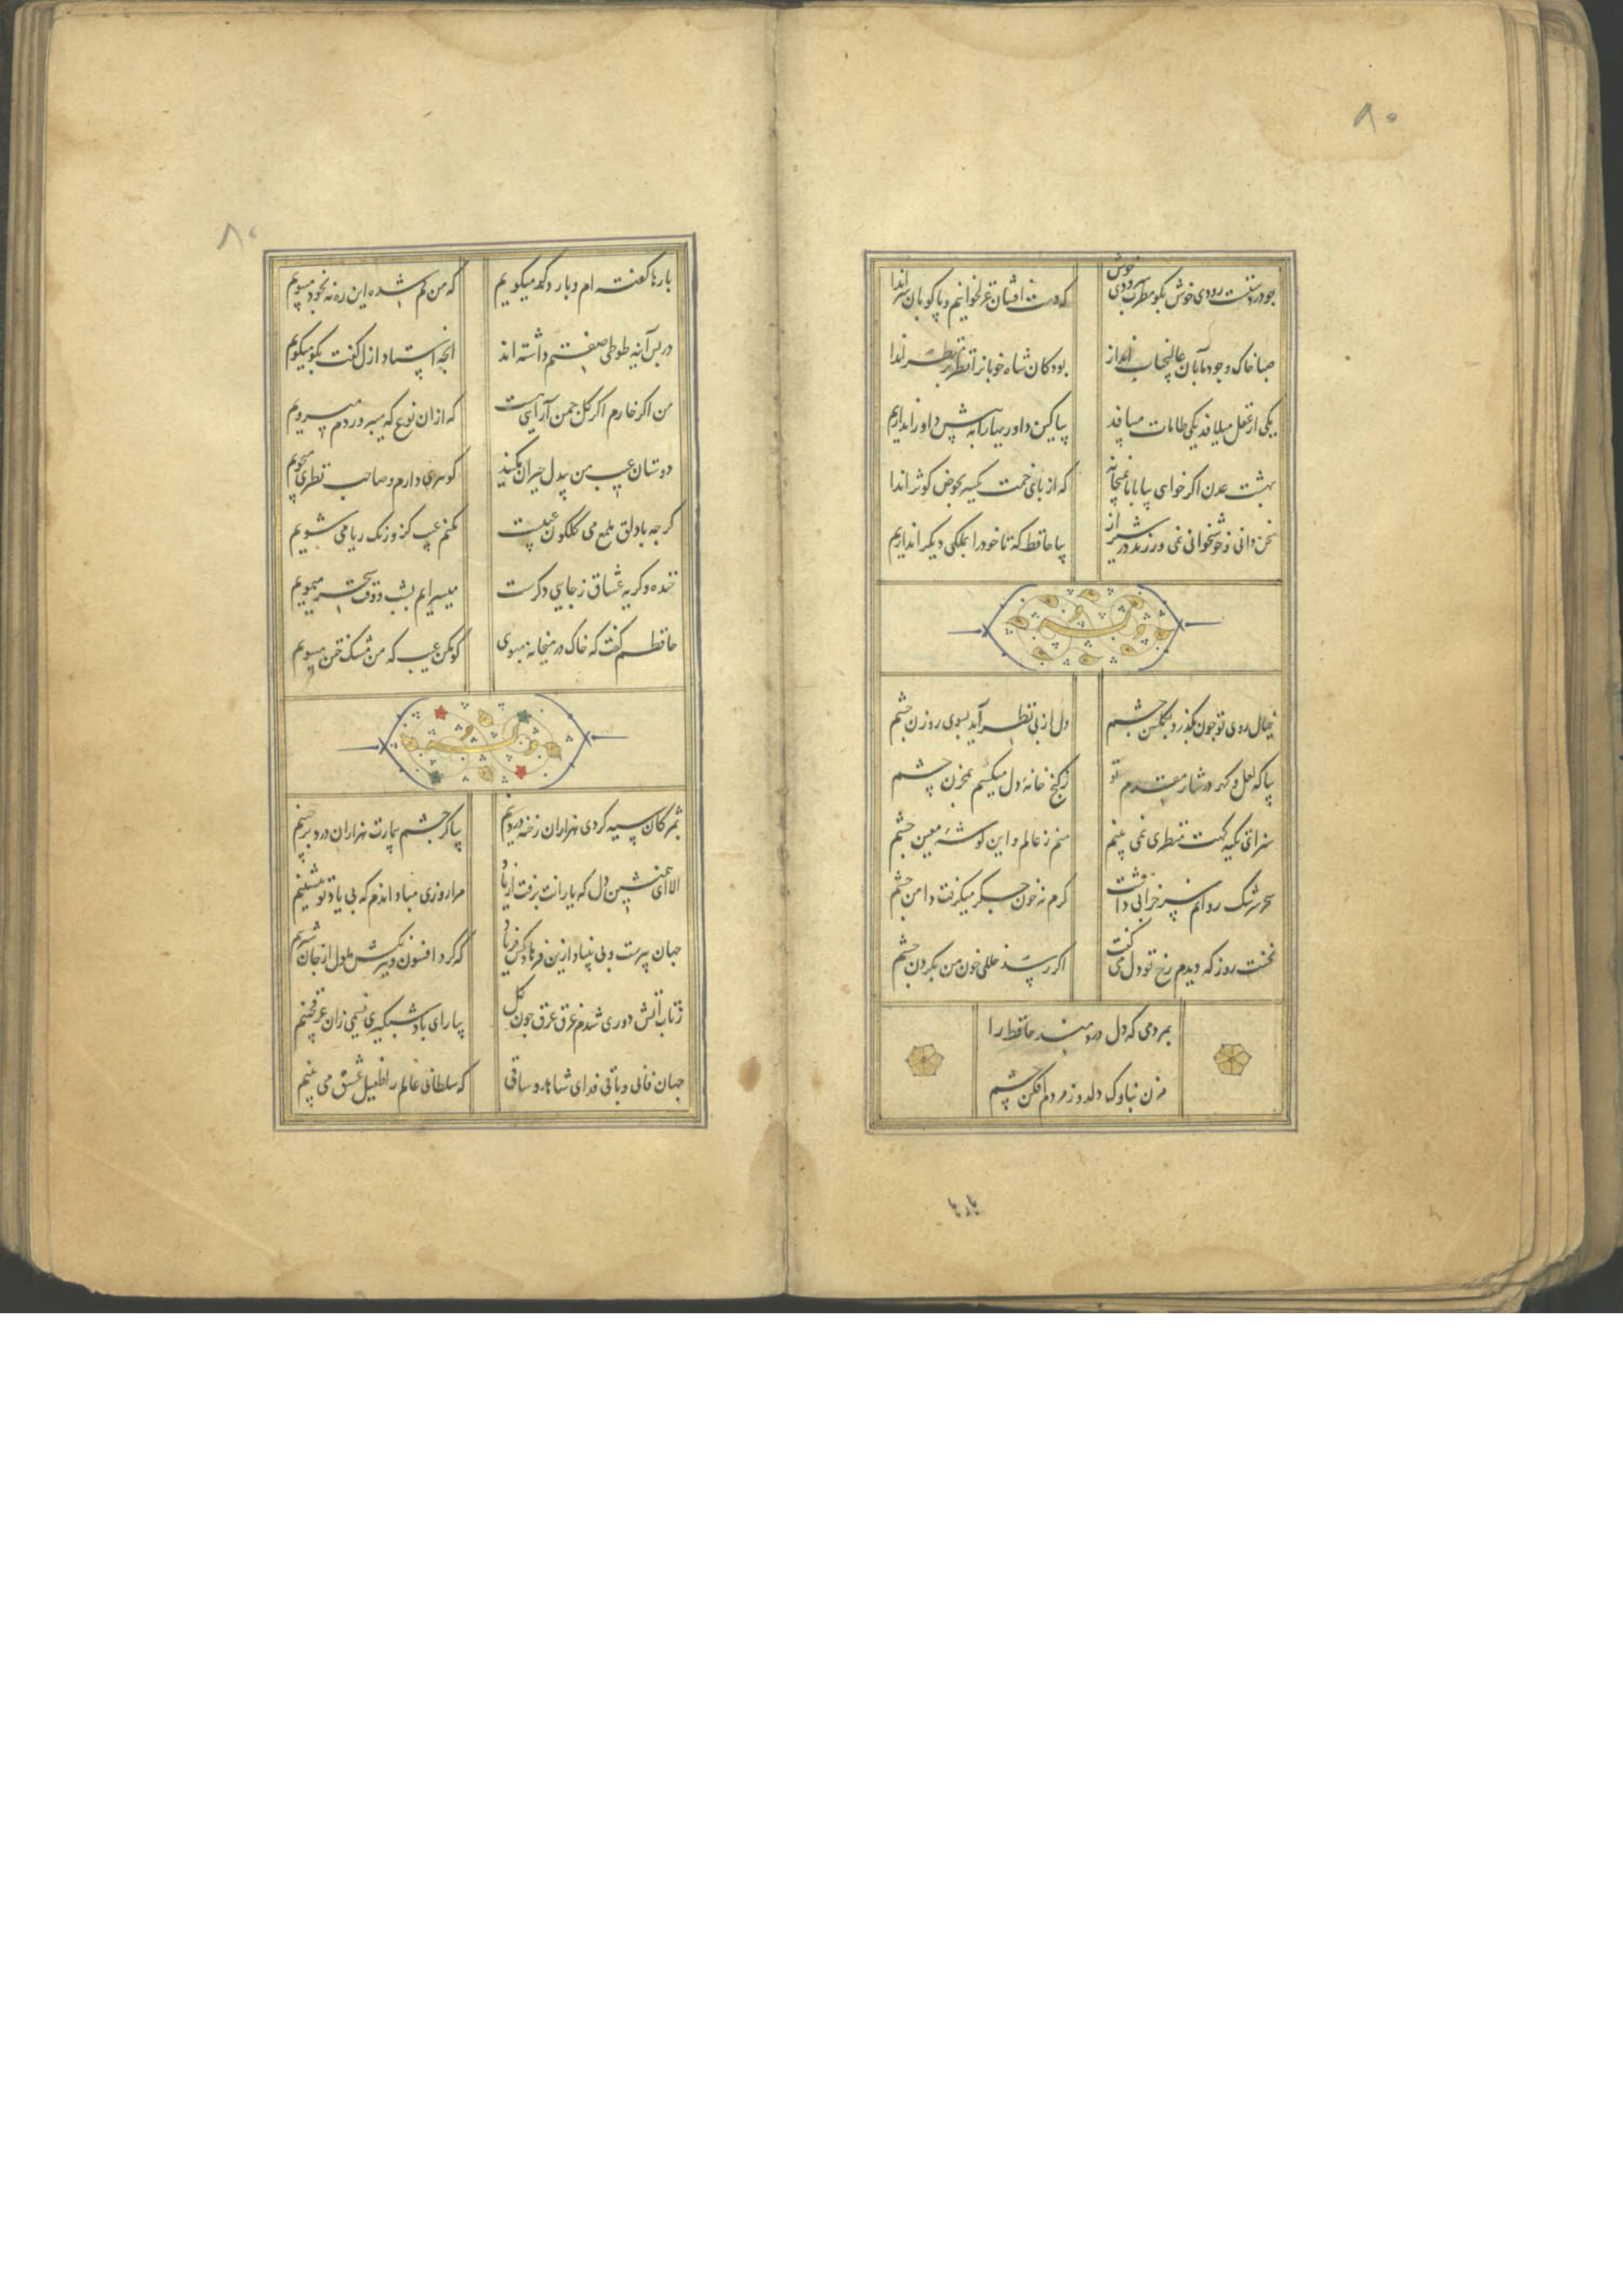 ۸۰
جو در دستت رودی خوش بگو مطرب سرودی خوش
که دست افشان غزل خوانیم و پا کوبان سر اندا
صبا خاک وجود ما بآن عالیجناب انداز
بود کان شاه خوبانرا نظر بر منظر اندا
یکی از عقل میلافد یکی طامات میبافد
بیا کین داوریها را به پیش داور اندازیم
بهشت عدن اگر خواهی بیا با ما بمیخانه
که از پای خمت یکسر بحوض کوثر اندا
سخن دانی و خوشخوانی نمی ورزند در شیراز
بیا حافظ که تا خود را بملکی دیگر اندازیم
وله
خیال روی تو جون بگذرد بگلشن جشم
دل از پی نظر آید بسوی روزن جشم
بیا که لعل و گهر در نثار مقدم تو
ز گنج خانهٔ دل میکشم بمخزن چشم
سزای تکیه گهت منظری نمی بینم
منم ز عالم و این گوشهٔ معین جشم
سحر سرشک روانم سر خرابی داشت
گرم نه خون جگر میگرفت دامن جشم
نخست روز که دیدم رخ تو دل می گفت
اگر رسد خللی خون من بگردن جشم
بمردمی که دل دردمند حافظ را
مزن بناوک دلدوز مردم افکن چشم
بارها
۸۰
بارها گفته ام و بار دگر میگویم
که من گم شده این ره نه بخود میپویم
در پس آینه طوطی صفتم داشته اند
انچه استاد ازل گفت بگو میگویم
من اگر خارم اگر گل جمن آرایی هست
که از ان نوع که میپروردم میرویم
دوستان عیب من بیدل حیران مکنید
گوهری دارم و صاحب نظری میجویم
گرجه با دلق ملمع می گلگون عیبست
مکنم عیب کزو رنگ ریا می شویم
خنده و گریه عشاق ز جایی دگرست
میسرایم بشب و وقت سحر میمویم
حافظم گفت که خاک در میخانه مبوی
گو مکن عیب که من مشک ختن میبویم
وله
بمژگان سیه کردی هزاران رخنه در دینم
بیا کز جشم بیمارت هزاران درد برچینم
الا ای همنشین دل که یارانت برفت از یاد
مرا روزی مباد اندم که بی یاد تو بنشینم
جهان پیرست و بی بنیاد ازین فرهاد کش فریاد
که کرد افسون و نیرنگش ملول از جان شیرینم
ز تاب آتش دوری شدم غرق عرق جون گل
بیار ای باد شبگیری نسیمی زان عرق چینم
جهان فانی و باقی فدای شاهد و ساقی
که سلطانی عالم را طفیل عشق می بینم